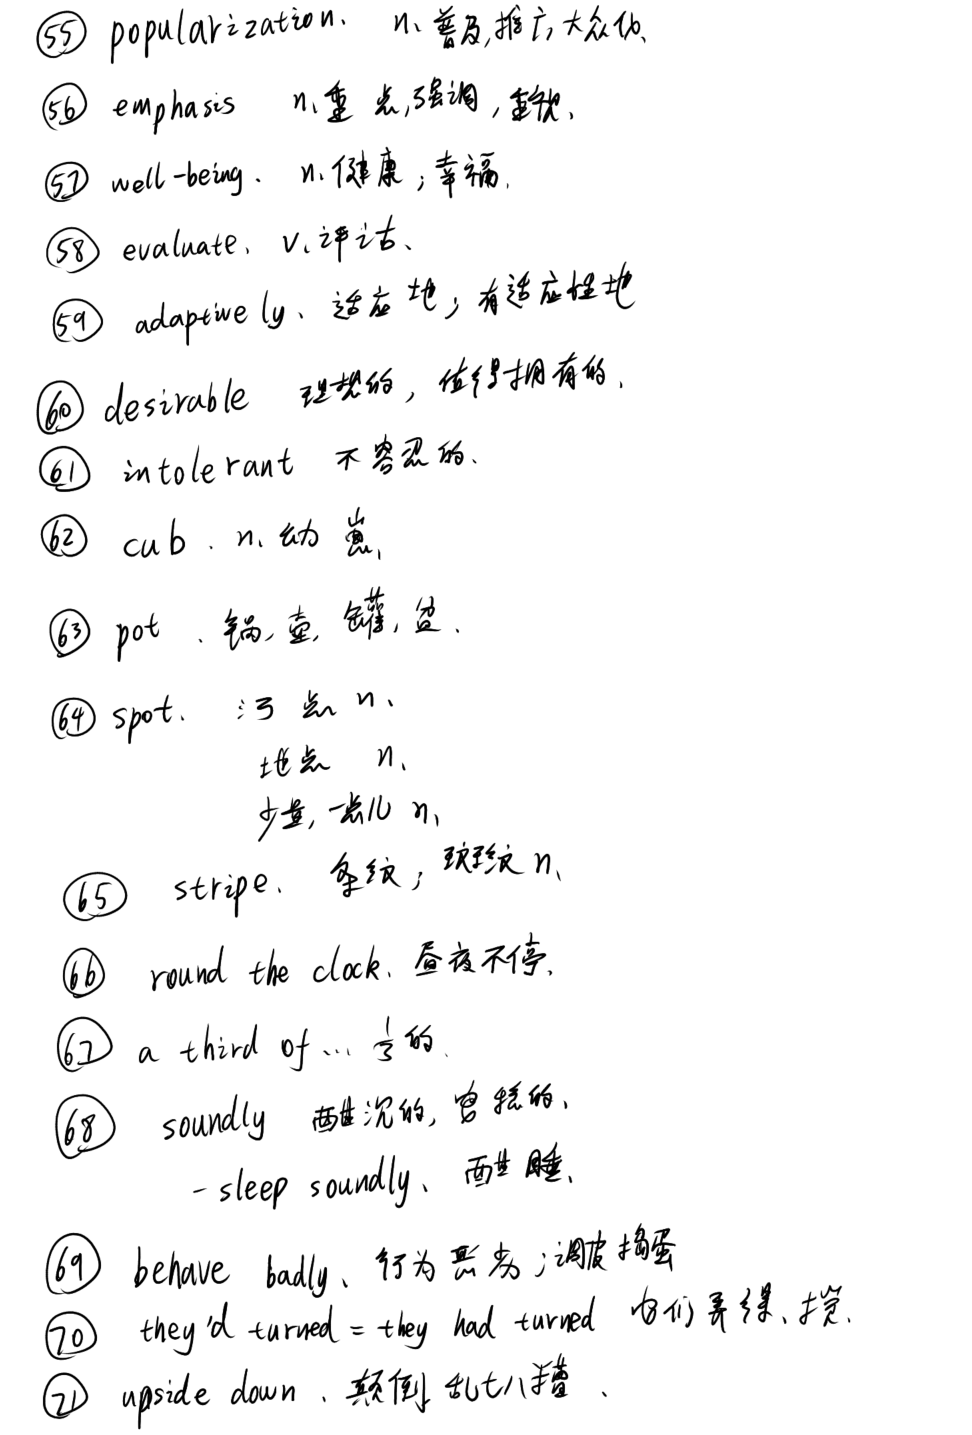 55 popularization. n. 普及,推广,大众化.
56 emphasis n. 重点,强调,重视.
57 well-being. n. 健康;幸福.
58 evaluate. v. 评估.
59 adaptively. 适应地;有适应性地
60 desirable 理想的,值得拥有的.
61 intolerant 不容忍的.
62 cub. n. 幼崽.
63 pot. 锅,壶,罐,盆.
64 spot. 污点 n.
地点 n.
少量,一点儿 n.
65 stripe. 条纹;斑纹 n.
66 round the clock. 昼夜不停.
67 a third of... 1/3的.
68 soundly 酣沉的,安稳的.
- sleep soundly. 酣睡.
69 behave badly. 行为恶劣;调皮捣蛋
70 they'd turned = they had turned 它们弄得、搅.
71 upside down. 颠倒 乱七八糟.